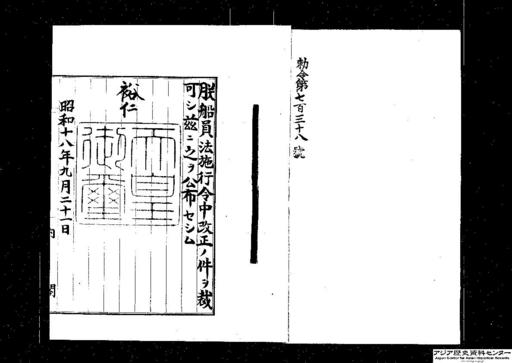 勅令第七百三十八號
朕船員法施行令中改正ノ件ヲ裁
可シ茲ニ之ヲ公布セシム
裕仁
天皇
御璽
昭和十八年九月二十一日
内閣
アジア歴史資料センター
Japan Center for Asian Historical Records